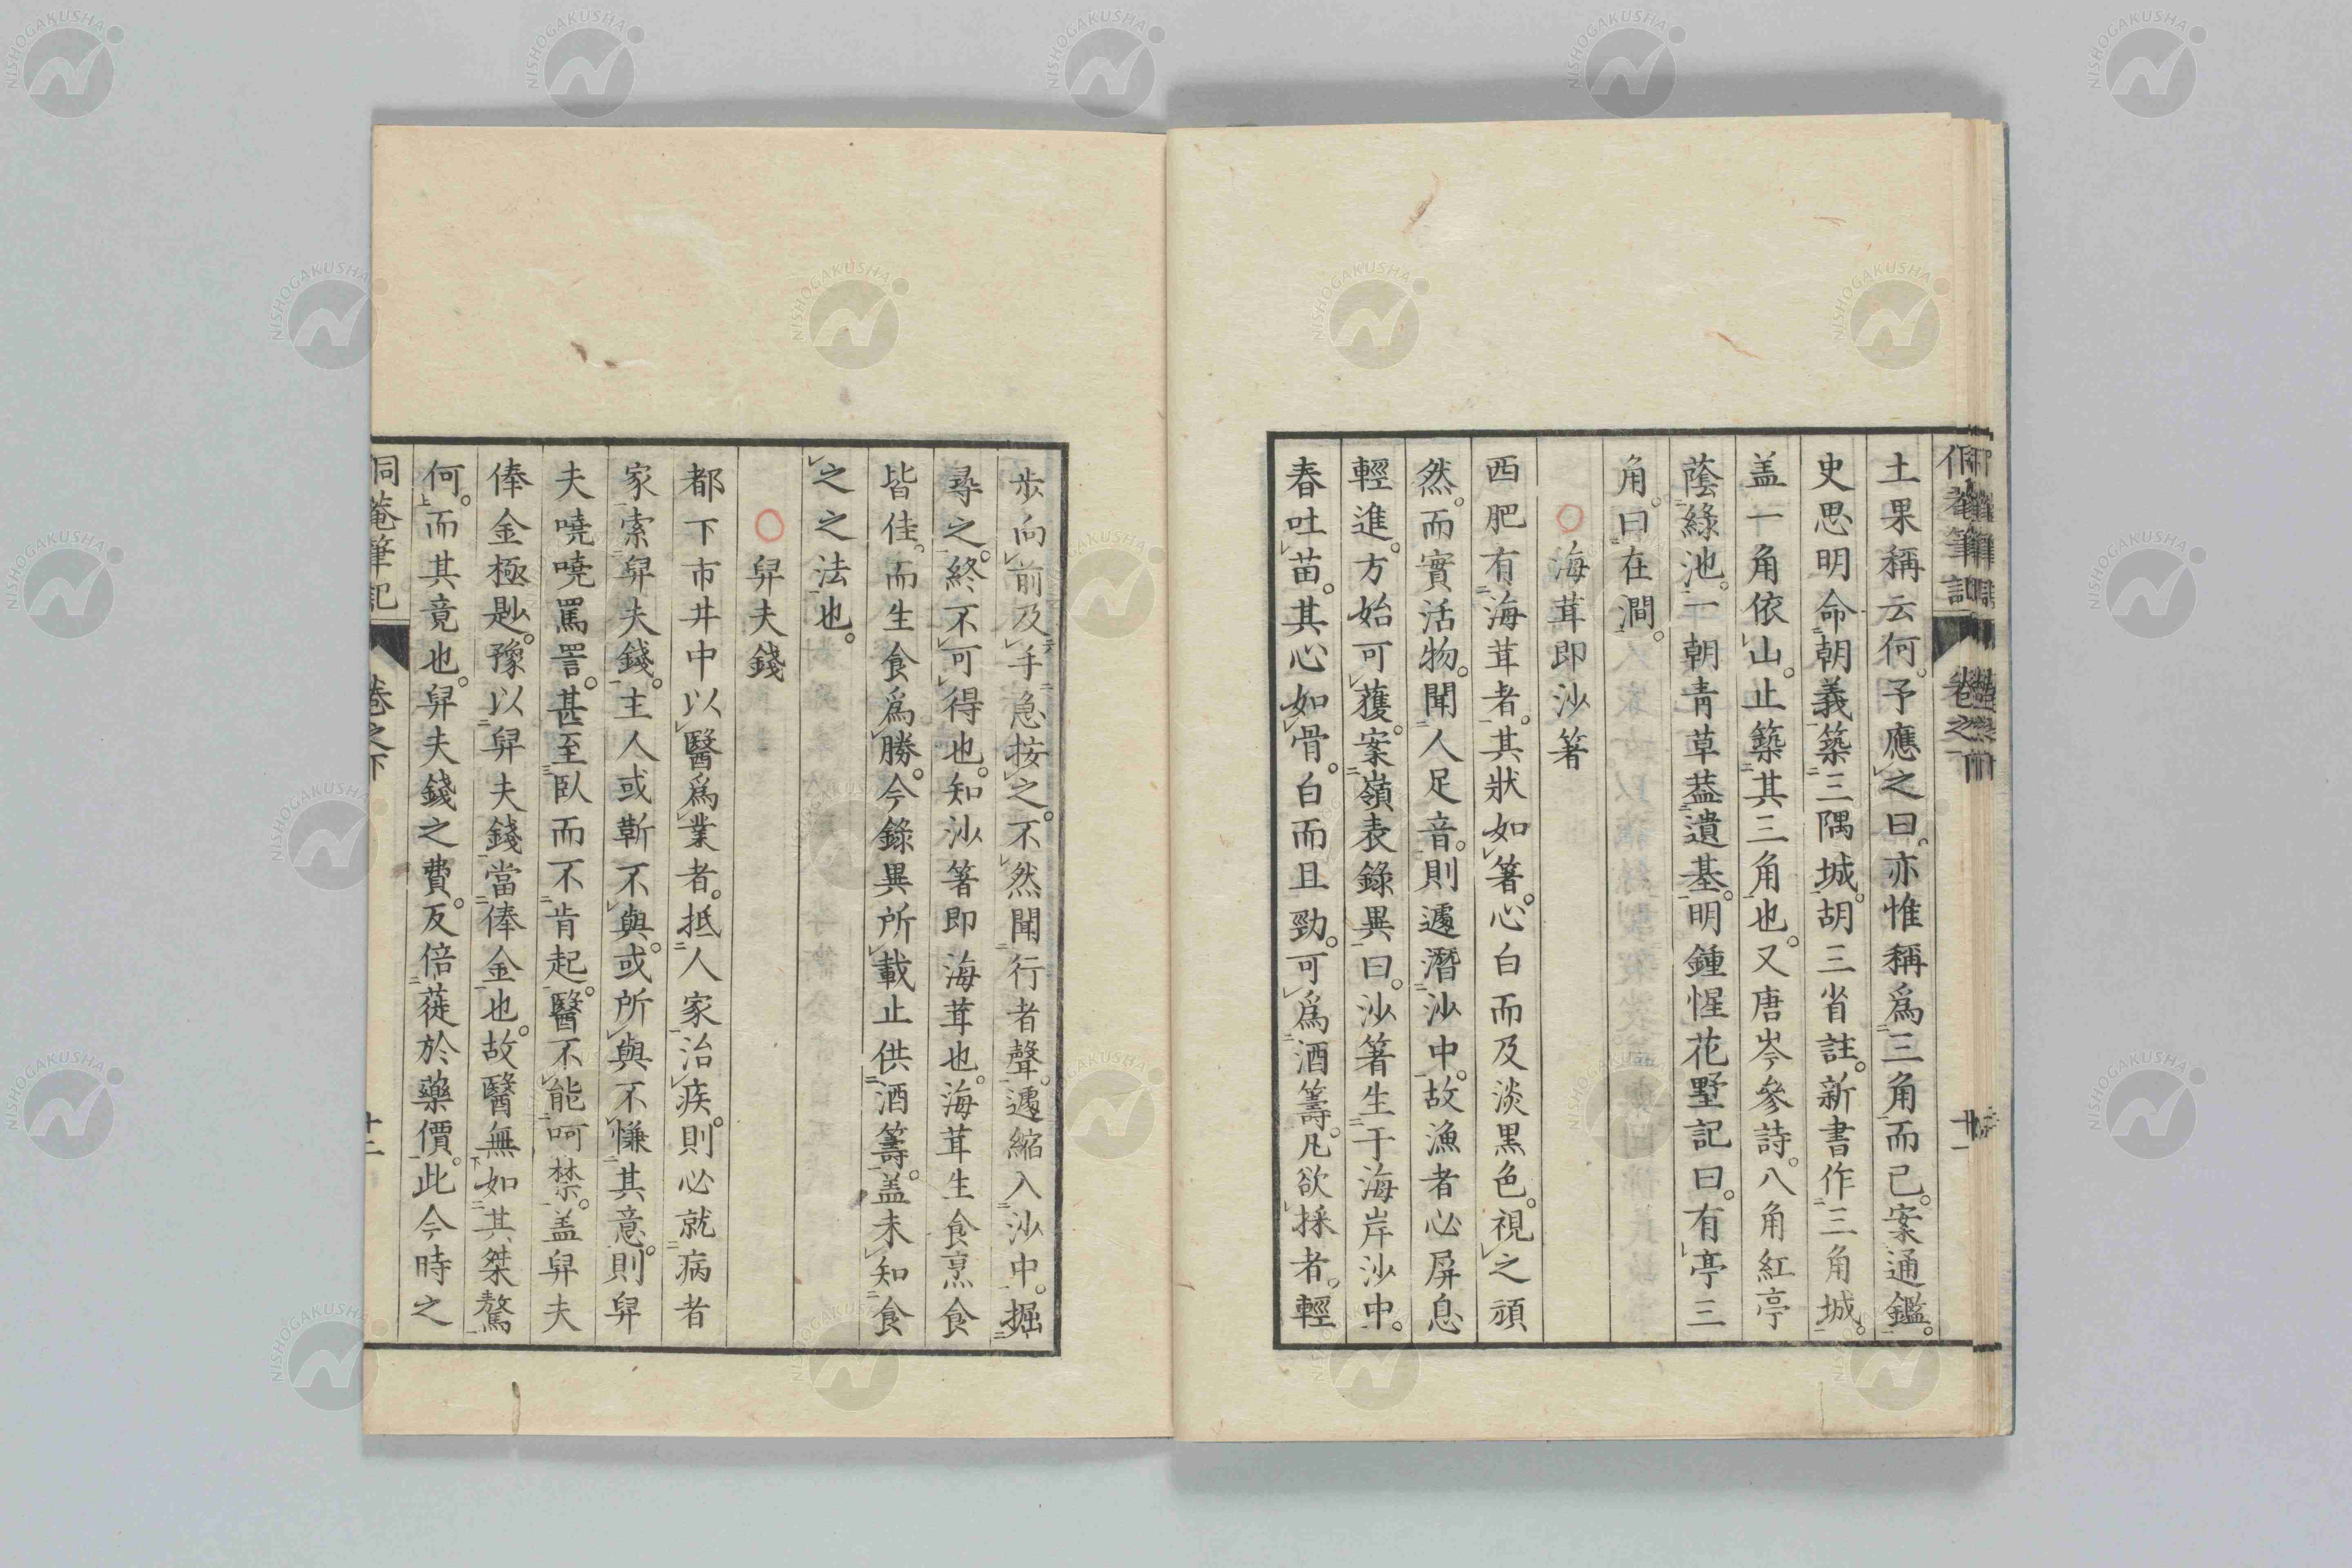 土果稱云何。予應之曰。亦惟稱爲三角而已。案通鑑。
史思明命朝義築三隅城。胡三省註。新書作三角城。
盖一角依山。止築其三角也。又唐岑參詩。八角紅亭
蔭綠池。一朝青草葢遺基。明鍾惺花墅記曰。有亭三
角。曰在澗。
○海茸即沙箸
西肥有海茸者。其狀如箸。心白而及淡黒色。視之頑
然。而實活物。聞人足音。則遽潛沙中。故漁者必屏息
輕進。方始可獲。案嶺表錄異曰。沙箸生于海岸沙中。
春吐苗。其心如骨。白而且勁。可爲酒籌。凡欲採者。輕
步向前。及手急按之。不然聞行者聲。遽縮入沙中。掘
尋之。終不可得也。知沙箸即海茸也。海茸生食烹食
皆佳。而生食爲勝。今錄異所載止供酒籌。盖未知食
之之法也。
○舁夫錢
都下市井中以醫爲業者。抵人家治疾。則必就病者
家索舁夫錢。主人或靳不與。或所與不慊其意。則舁
夫嘵嘵罵詈。甚至臥而不肯起。醫不能呵禁。盖舁夫
俸金極尟。豫以舁夫錢當俸金也。故醫無如其桀驁
何。而其竟也。舁夫錢之費。反倍蓰於藥價。此今時之
侗菴筆記 卷之下 十二
NISHOGAKUSHA